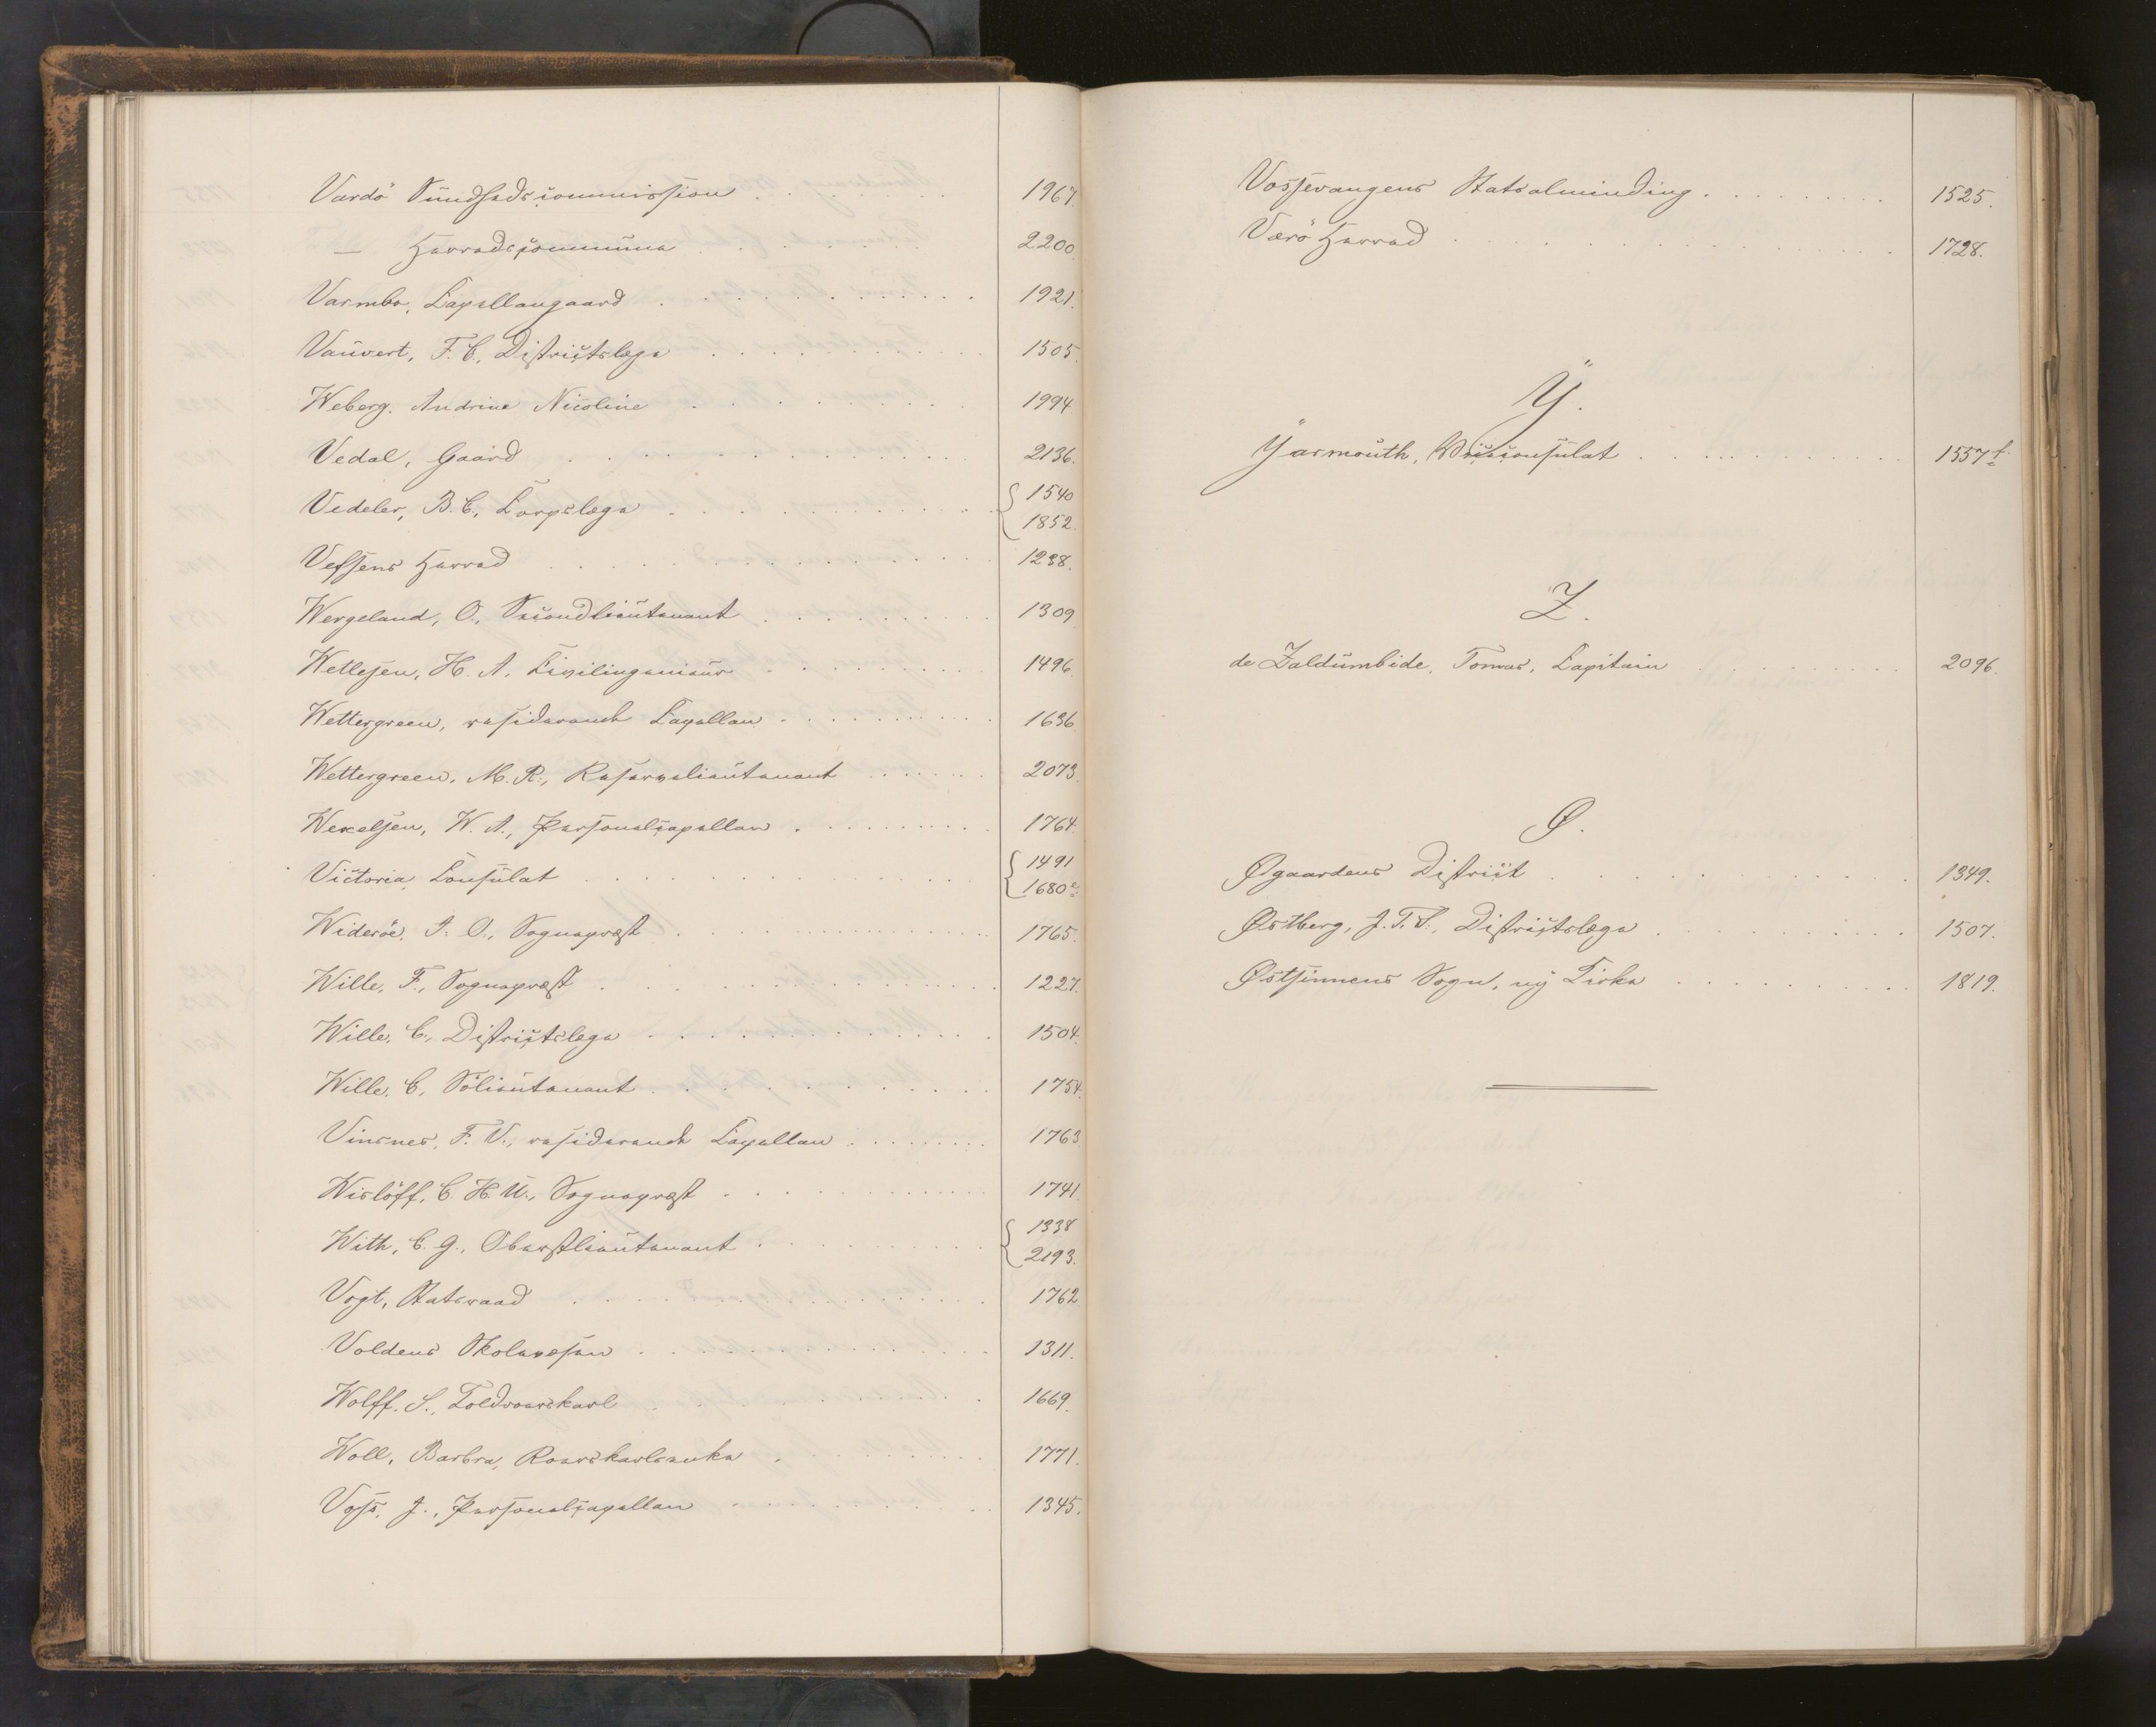 Vardö Sundhedscommission . . . . . 1967.
— Herredscommune . . . . . 2200.
Varmbo, Capellangaard . . . . . 1921.
Vauvert, F. C., Districtslæge . . . . . 1505.
Weberg, Andrine Nicoline . . . . . 1994.
Vedal, Gaard . . . . . 2136.
Vedeler, B. C., Corpslæge . . . . . { 1540
1852.
Vefsens Herred . . . . . 1238.
Wergeland, O., Secondlieutenant . . . . . 1309
Wetlesen, H. A. Civilingenieur . . . . . 1496.
Wettergreen, residerende Capellan . . . . . 1636
Wettergreen, M. R., Reservelieutenant . . . . . 2073
Wexelsen, W. A., Personelcapellan . . . . . 1764.
Victoria, Consulat . . . . . { 1491
1680 e.
Wideröe, J. O., Sognepræst . . . . . 1765.
Wille, F., Sognepræst . . . . . 1227.
Wille, C., Districtslæge . . . . . 1504.
Wille, C., Sölieutenant . . . . . 1754.
Vinsnes, F. V., residerende Capellan . . . . . 1763.
Wislöff, C. H. U., Sognepræst . . . . . 1741.
With, C. G., Oberstlieutenant . . . . . { 1338
2193.
Vogt, Statsraad . . . . . 1762
Voldens Skolevæsen . . . . . 1311.
Wolff, S., Toldroerskarl . . . . . 1669.
Woll, Barbra, Roerskarlsenke . . . . . 1771.
Voss, J., Personelcapellan . . . . . 1345.
Vossevangens Statsalminding . . . . . 1525.
Værö Herred . . . . . 1728.
Y.
Yarmouth, Viceconsulat . . . . . 1557 f.
Z.
de Zaldumbide, Tomas, Capitain . . . . . 2096.
Ø.
Øgaardens District . . . . . 1349.
Østberg, J. T. S., Districtslæge . . . . . 1507.
Østsinnens Sogn, ny Kirke . . . . . 1819.